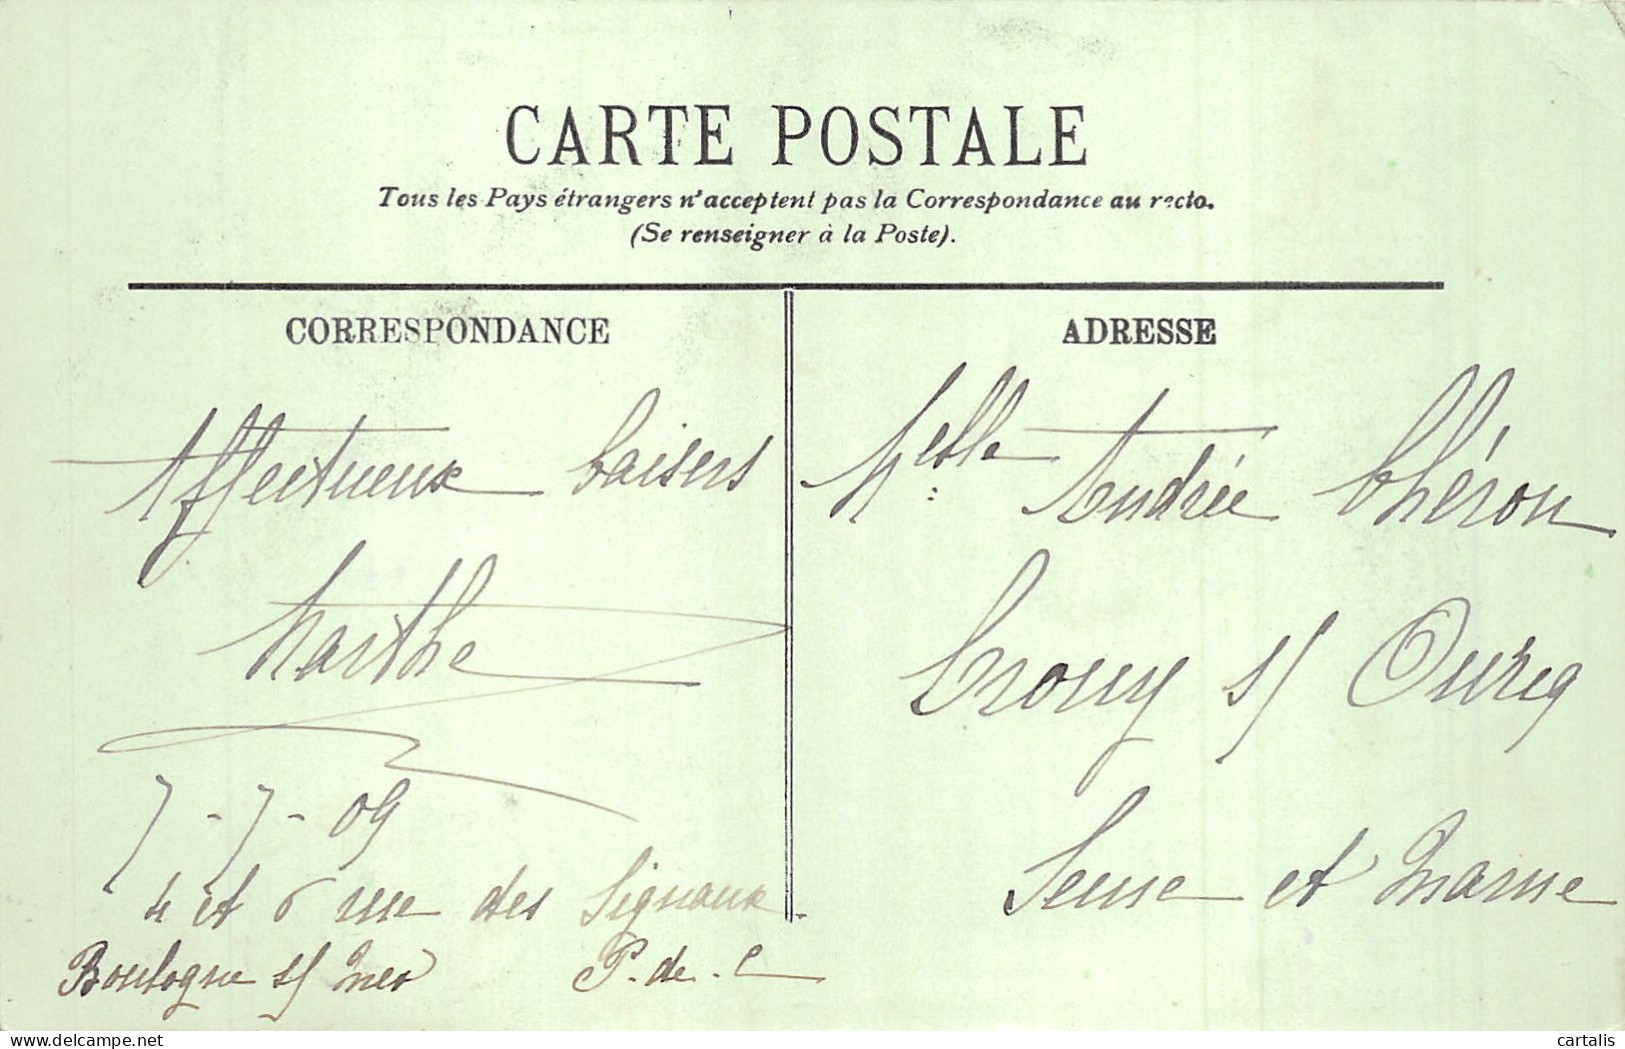 CARTE POSTALE
Tous les Pays étrangers n'acceptent pas la Correspondance au recto.
(Se renseigner à la Poste).
CORRESPONDANCE
Affectueux baisers
Marthe
7-7-09
4 et 6 rue des Signaux
Boulogne s/ Mer P. de. C
ADRESSE
Melle Andrée Chéron
Crouy s/ Ourcq
Seine et Marne
delcampe.net
cartalis